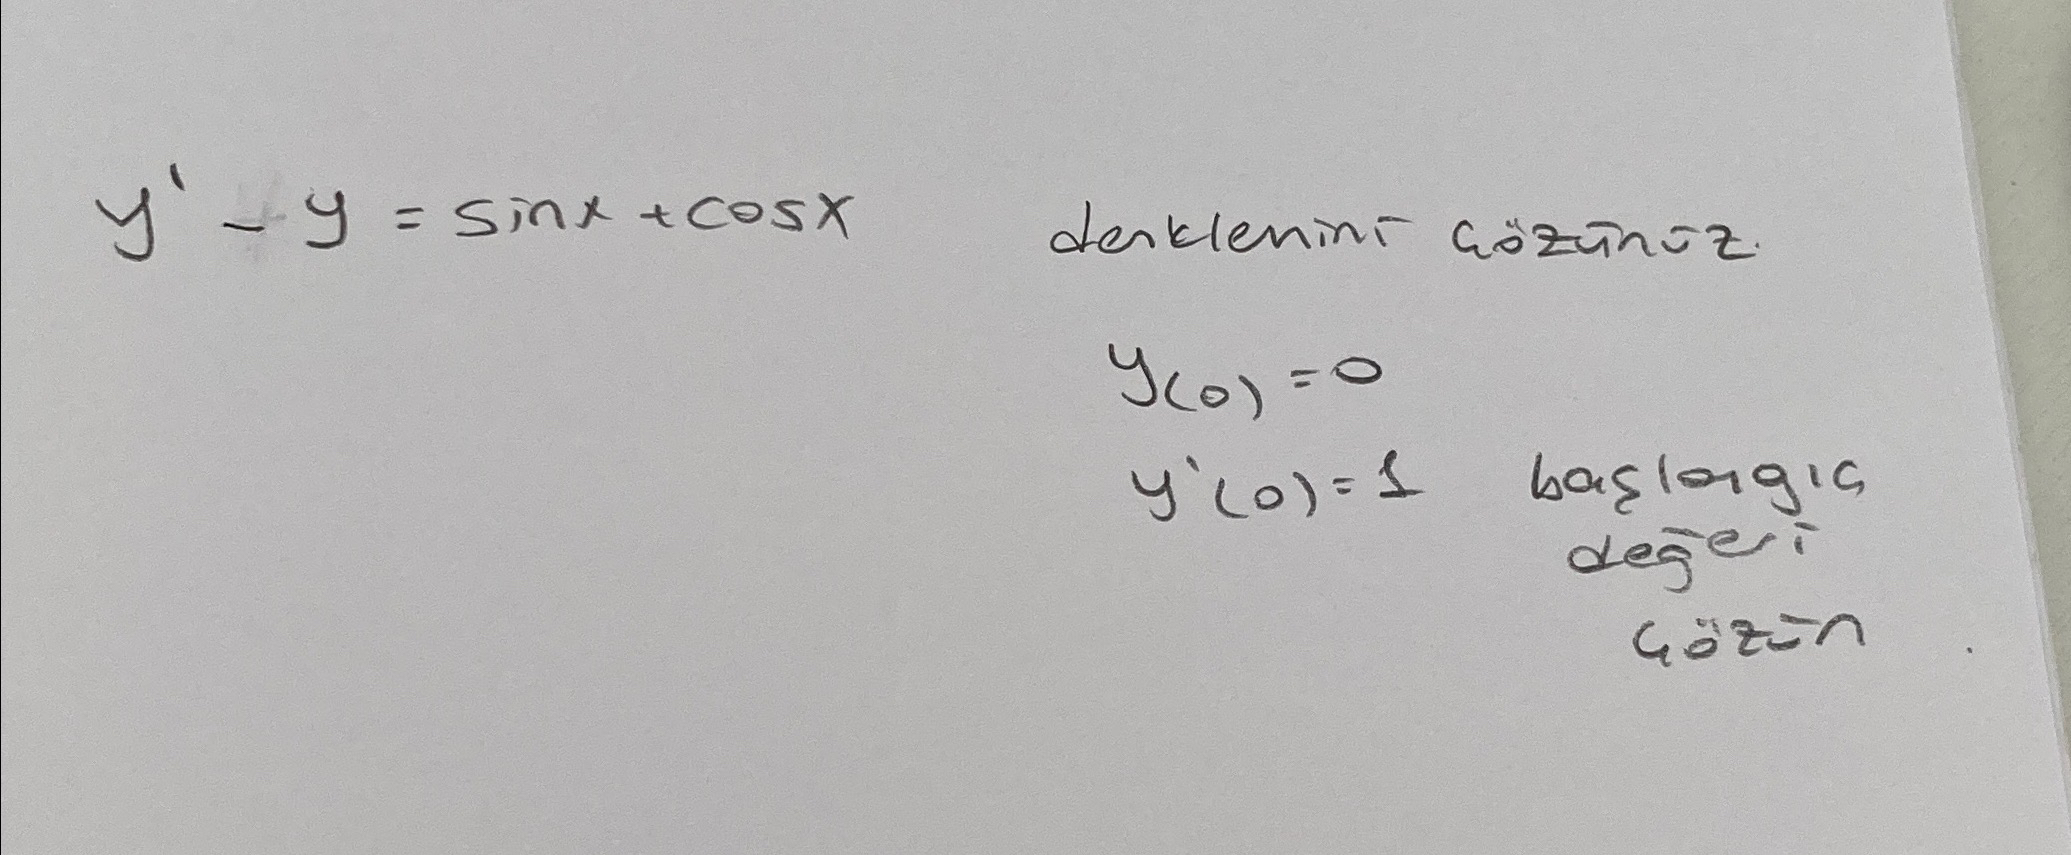 y' - y = sinx + cosx denklemini çözünüz.
y(0) = 0
y'(0) = 1 başlangıç
değeri
çözün